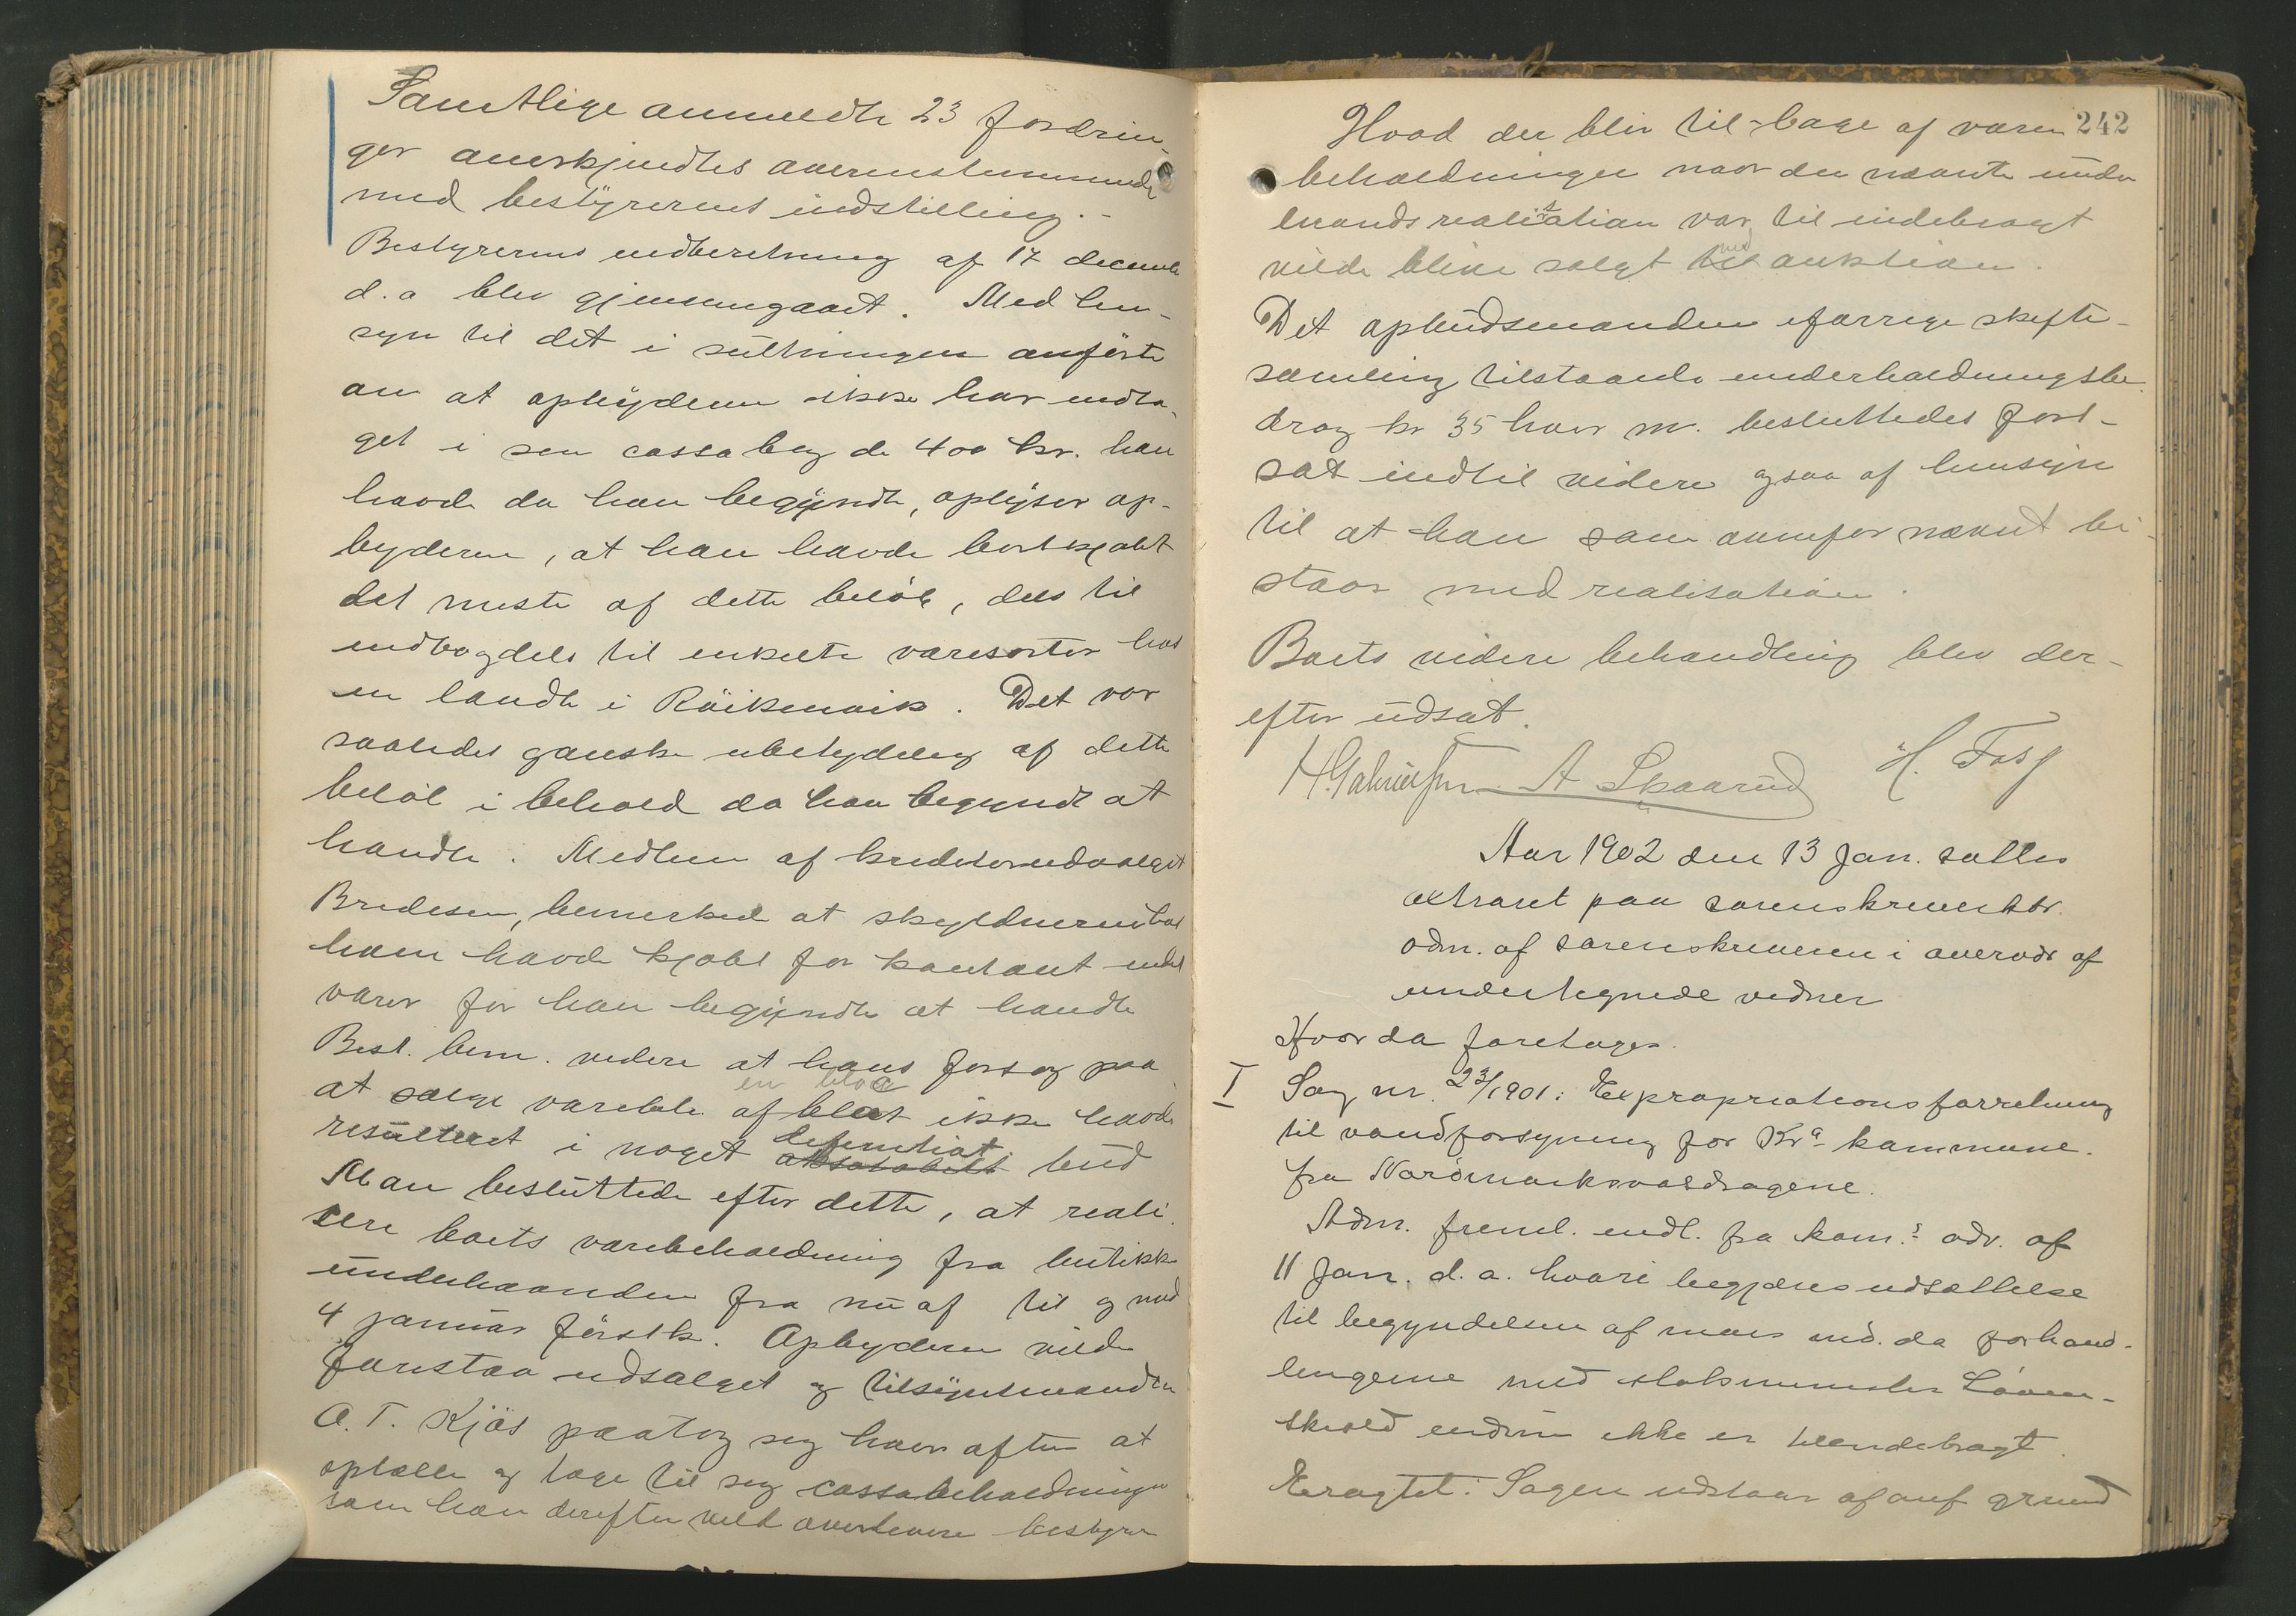 Samtlige anmeldte 23 fordrin-
ger anerkjendtes overensstemmende
med bestyrerens indstilling.-
Bestyrerens indberetning af 17 decembr
d.a blev gjennemgaaet. Med hen-
syn til det i slutningen anførte
om at opbyderen ikke har indta-
get i sin cassabog de 400 kr. han
havde da han begyndte, oplyser op-
byderen, at han havde bortkjøbt
det meste af dette beløb, dels til
indbo og dels til enkelte varesorter hos
en landh i Röikenvik. Det var
saaledes ganske ubetydelig af dette
beløb i behold da han begyndte at
handle. Medlem af kreditorudvalget
Bredesen, bemerked at skyldneren hos
ham havde kjøbt for kontant endel
varer før han begyndte at handle
Best. bem. videre at hans forsøg paa
en bloc
at sælge varebeh. af boet ikke havde
definitivt
resulteret i noget bud
Man besluttede efter dette, at reali-
sere boets varebeholdning fra butikken
underhaanden fra nu af til og med
4 januar førstk. Opbyderen vilde
forestaa udsalget og tilsynsmanden
O. T. Kjös paatog sig hver aften at
optælle og tage til sig cassabeholdningen
som han derefter vilde overlevere bestyrer
242
Hvad der blir til-bage af vare
beholdningen naar den nævnte under
haandsrealisation var til endebragt
vilde blive solgt ved auktion.
Det opbudsmanden i forrige skifte-
samling tilstaaede underholdningsbi-
drag kr 35 hver m. besluttedes fort-
sat indtil videre ogsaa af hensyn
til at han som ovenfor nævnt bi-
staar med realisation.
Boets videre behandling blev der-
efter udsat.
H. Gabrielsen A Skaarud H. Foss
Aar 1902 den 13 Jan. sattes
extraret paa sorenskriverktr.
adm. af sorenskriveren i overvær af
undertegnede vidner
Hvor da foretoges.
I Sag nr. 23/1901: Expropriationsforretning
til vandforsyning for Kra kommune.
fra Nordmarksvasdragene.
Adm. freml. indl. fra kom.s adv. af
11 Jan. d.a. hvori begjæres udsættelse
til begyndelsen af mars md. da forhand-
lingerne med statsminister Løven-
skiold endnu ikke er tilendebragt.
Eragtet: Sagen udstaar af anf grund